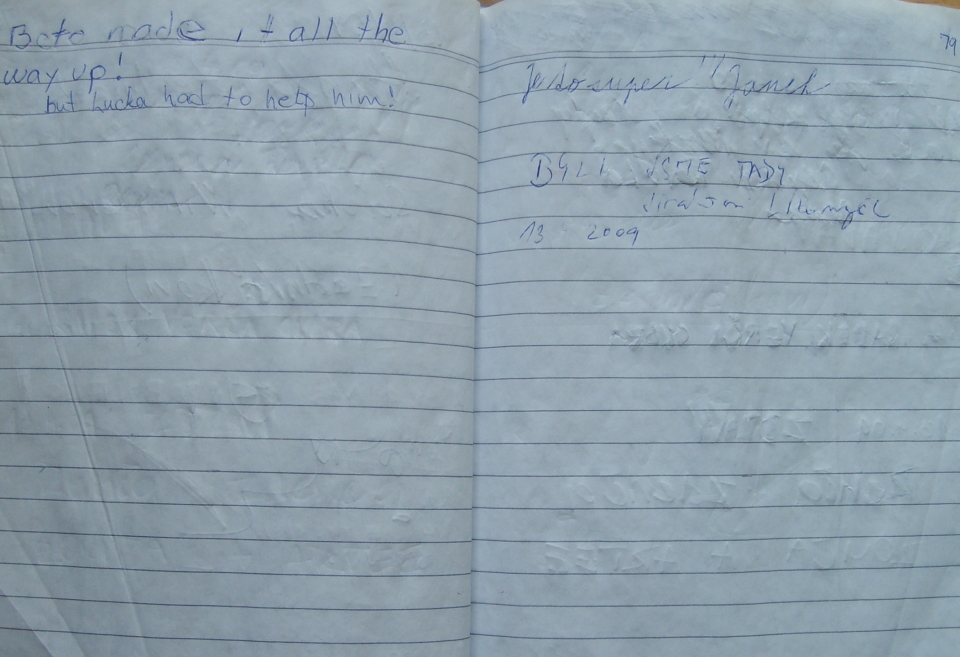 Bete made it all the
way up!
but Lucka had to help him!
79
Je to super !!! Janek
BYLI JSME TADY
13 2009